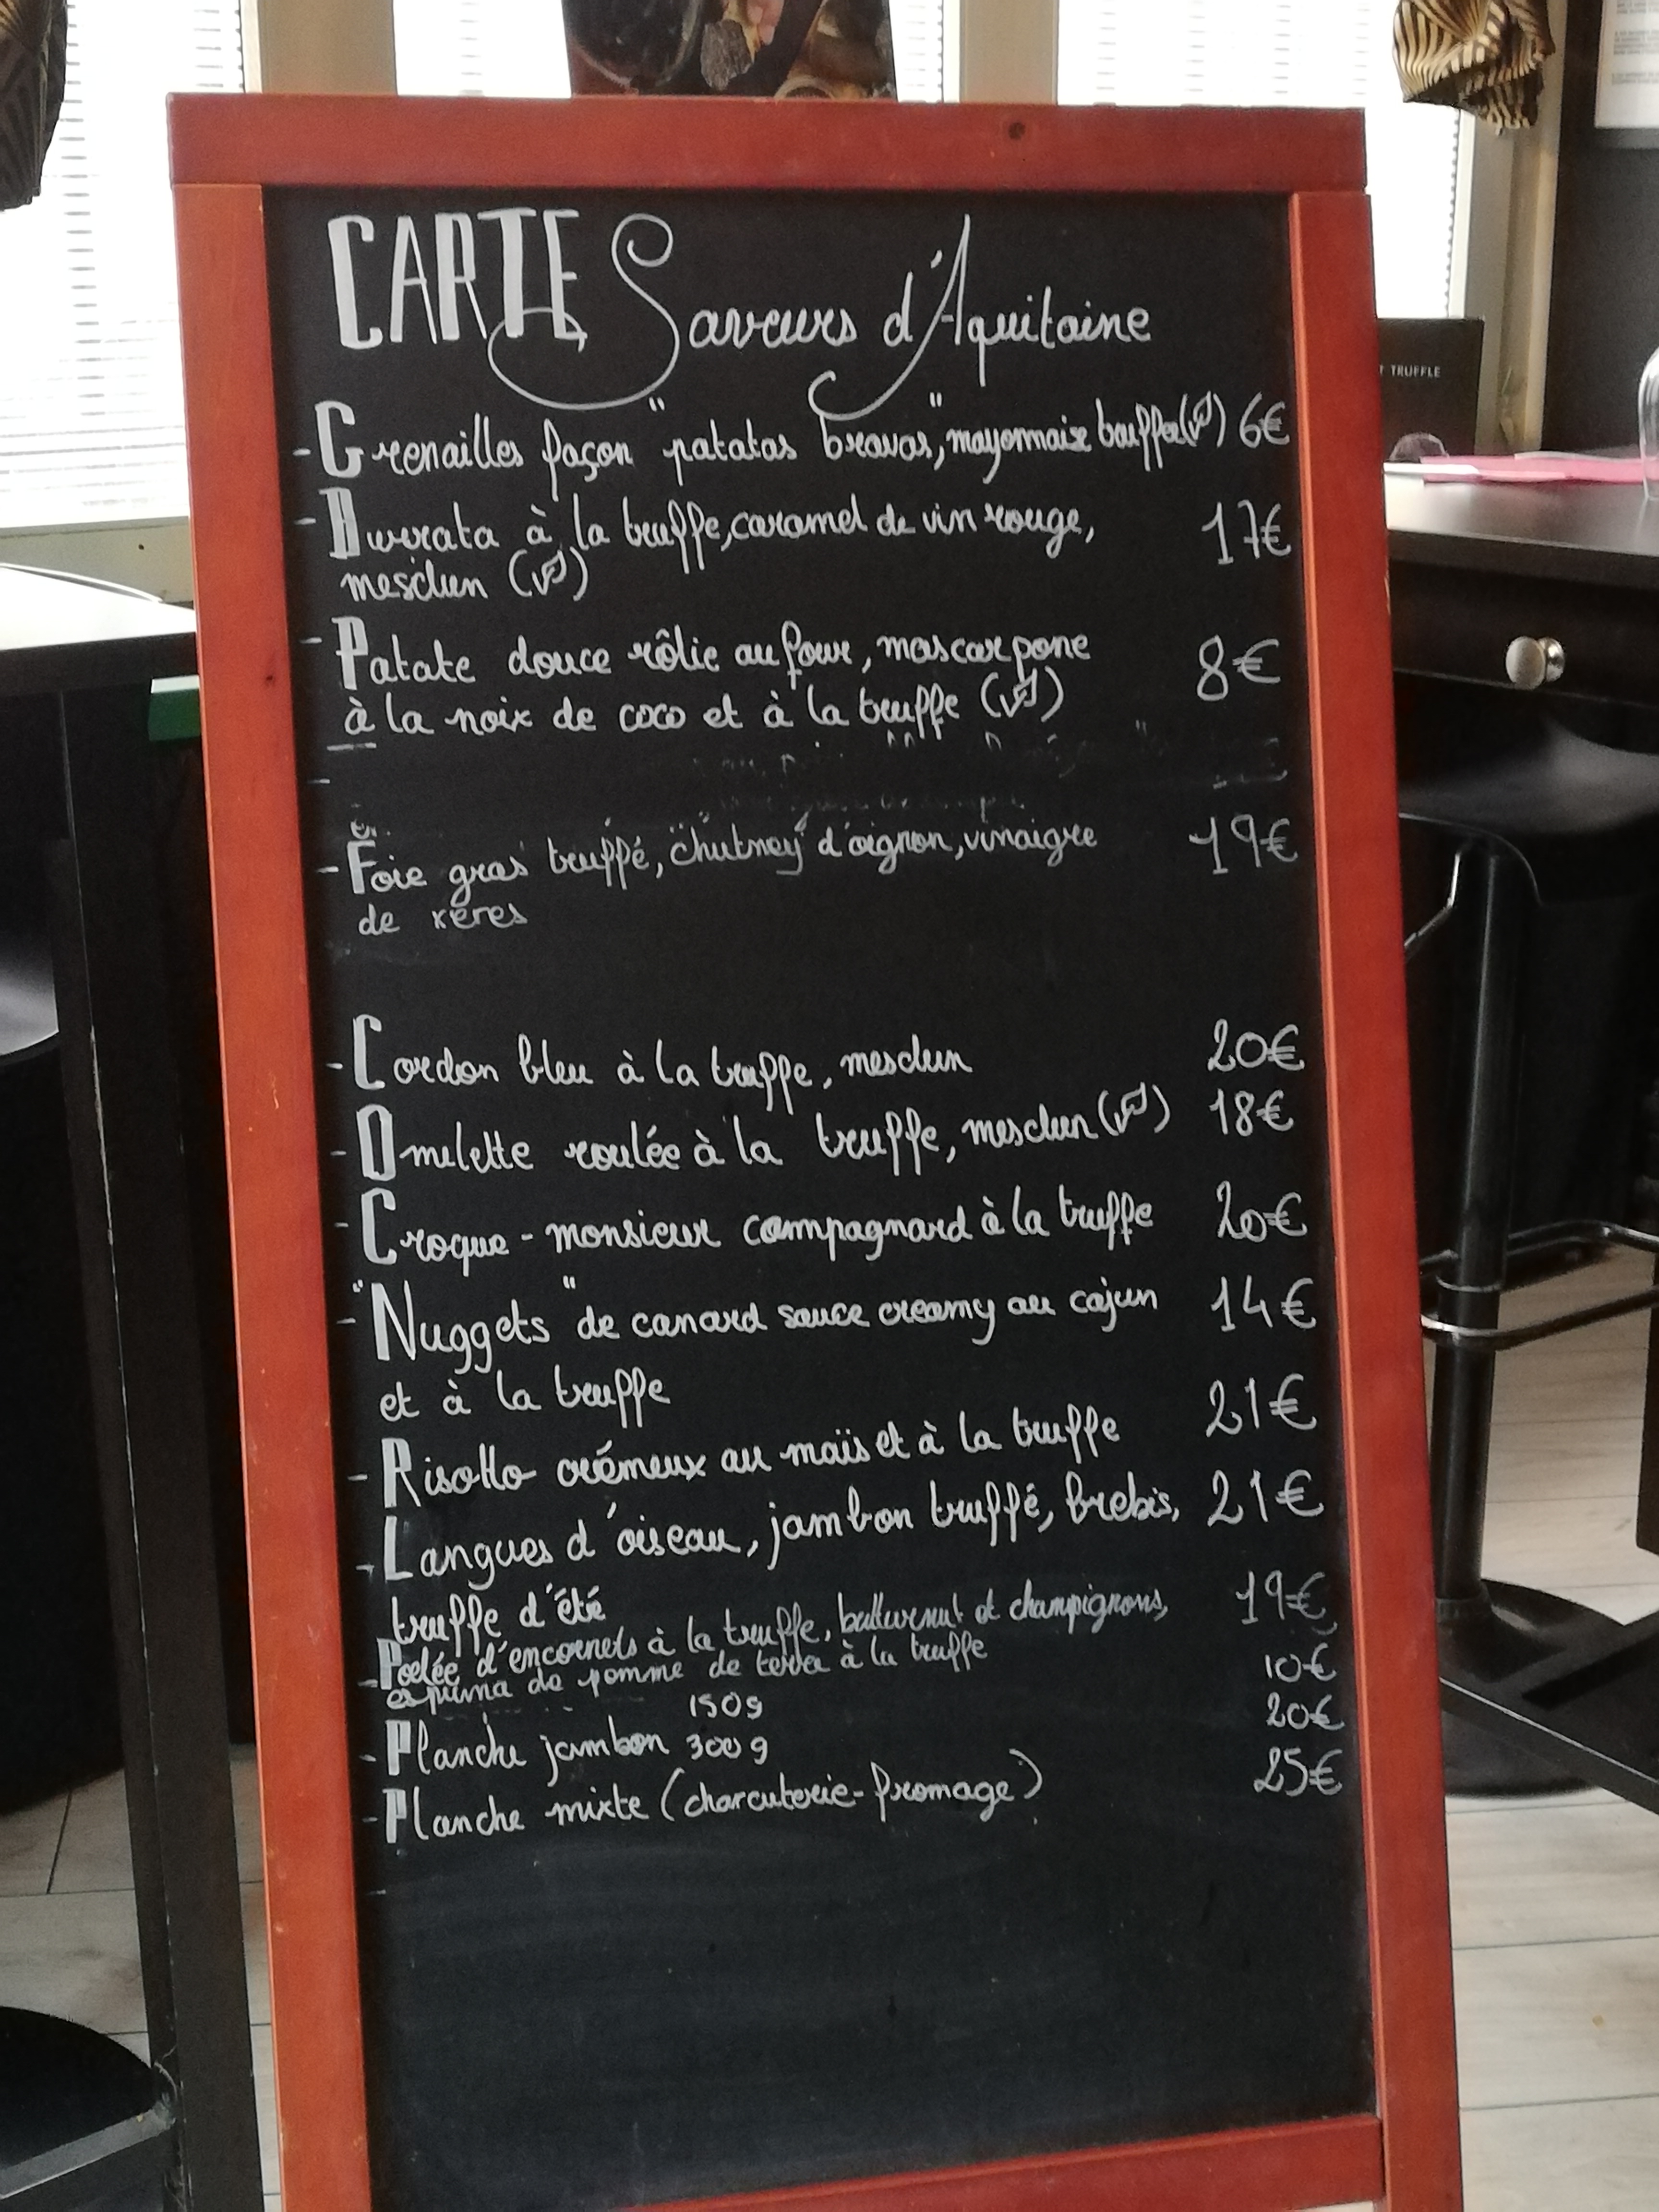 CARTE Saveurs d'Aquitaine
T TRUFFLE
- Grenailles façon "patatas bravas", mayonnaise truffée (v) 6€
- Burrata à la truffe, caramel de vin rouge, 17€
mesclun (v)
- Patate douce rôtie au four, mascarpone 8€
à la noix de coco et à la truffe (v)
- Foie gras truffé, chutney d'oignon, vinaigre 19€
de xeres
- Cordon bleu à la truffe, mesclun 20€
- Omelette roulée à la truffe, mesclun (v) 18€
- Croque-monsieur campagnard à la truffe 20€
- "Nuggets" de canard sauce creamy au cajun 14€
et à la truffe
- Risotto crémeux au maïs et à la truffe 21€
- Langues d'oiseau, jambon truffé, brebis, 21€
truffe d'été
- Poelée d'encornets à la truffe, butternut et champignons, 19€
espuma de pomme de terre à la truffe
150g 10€
- Planche jambon 300g 20€
- Planche mixte (charcuterie-fromage) 25€